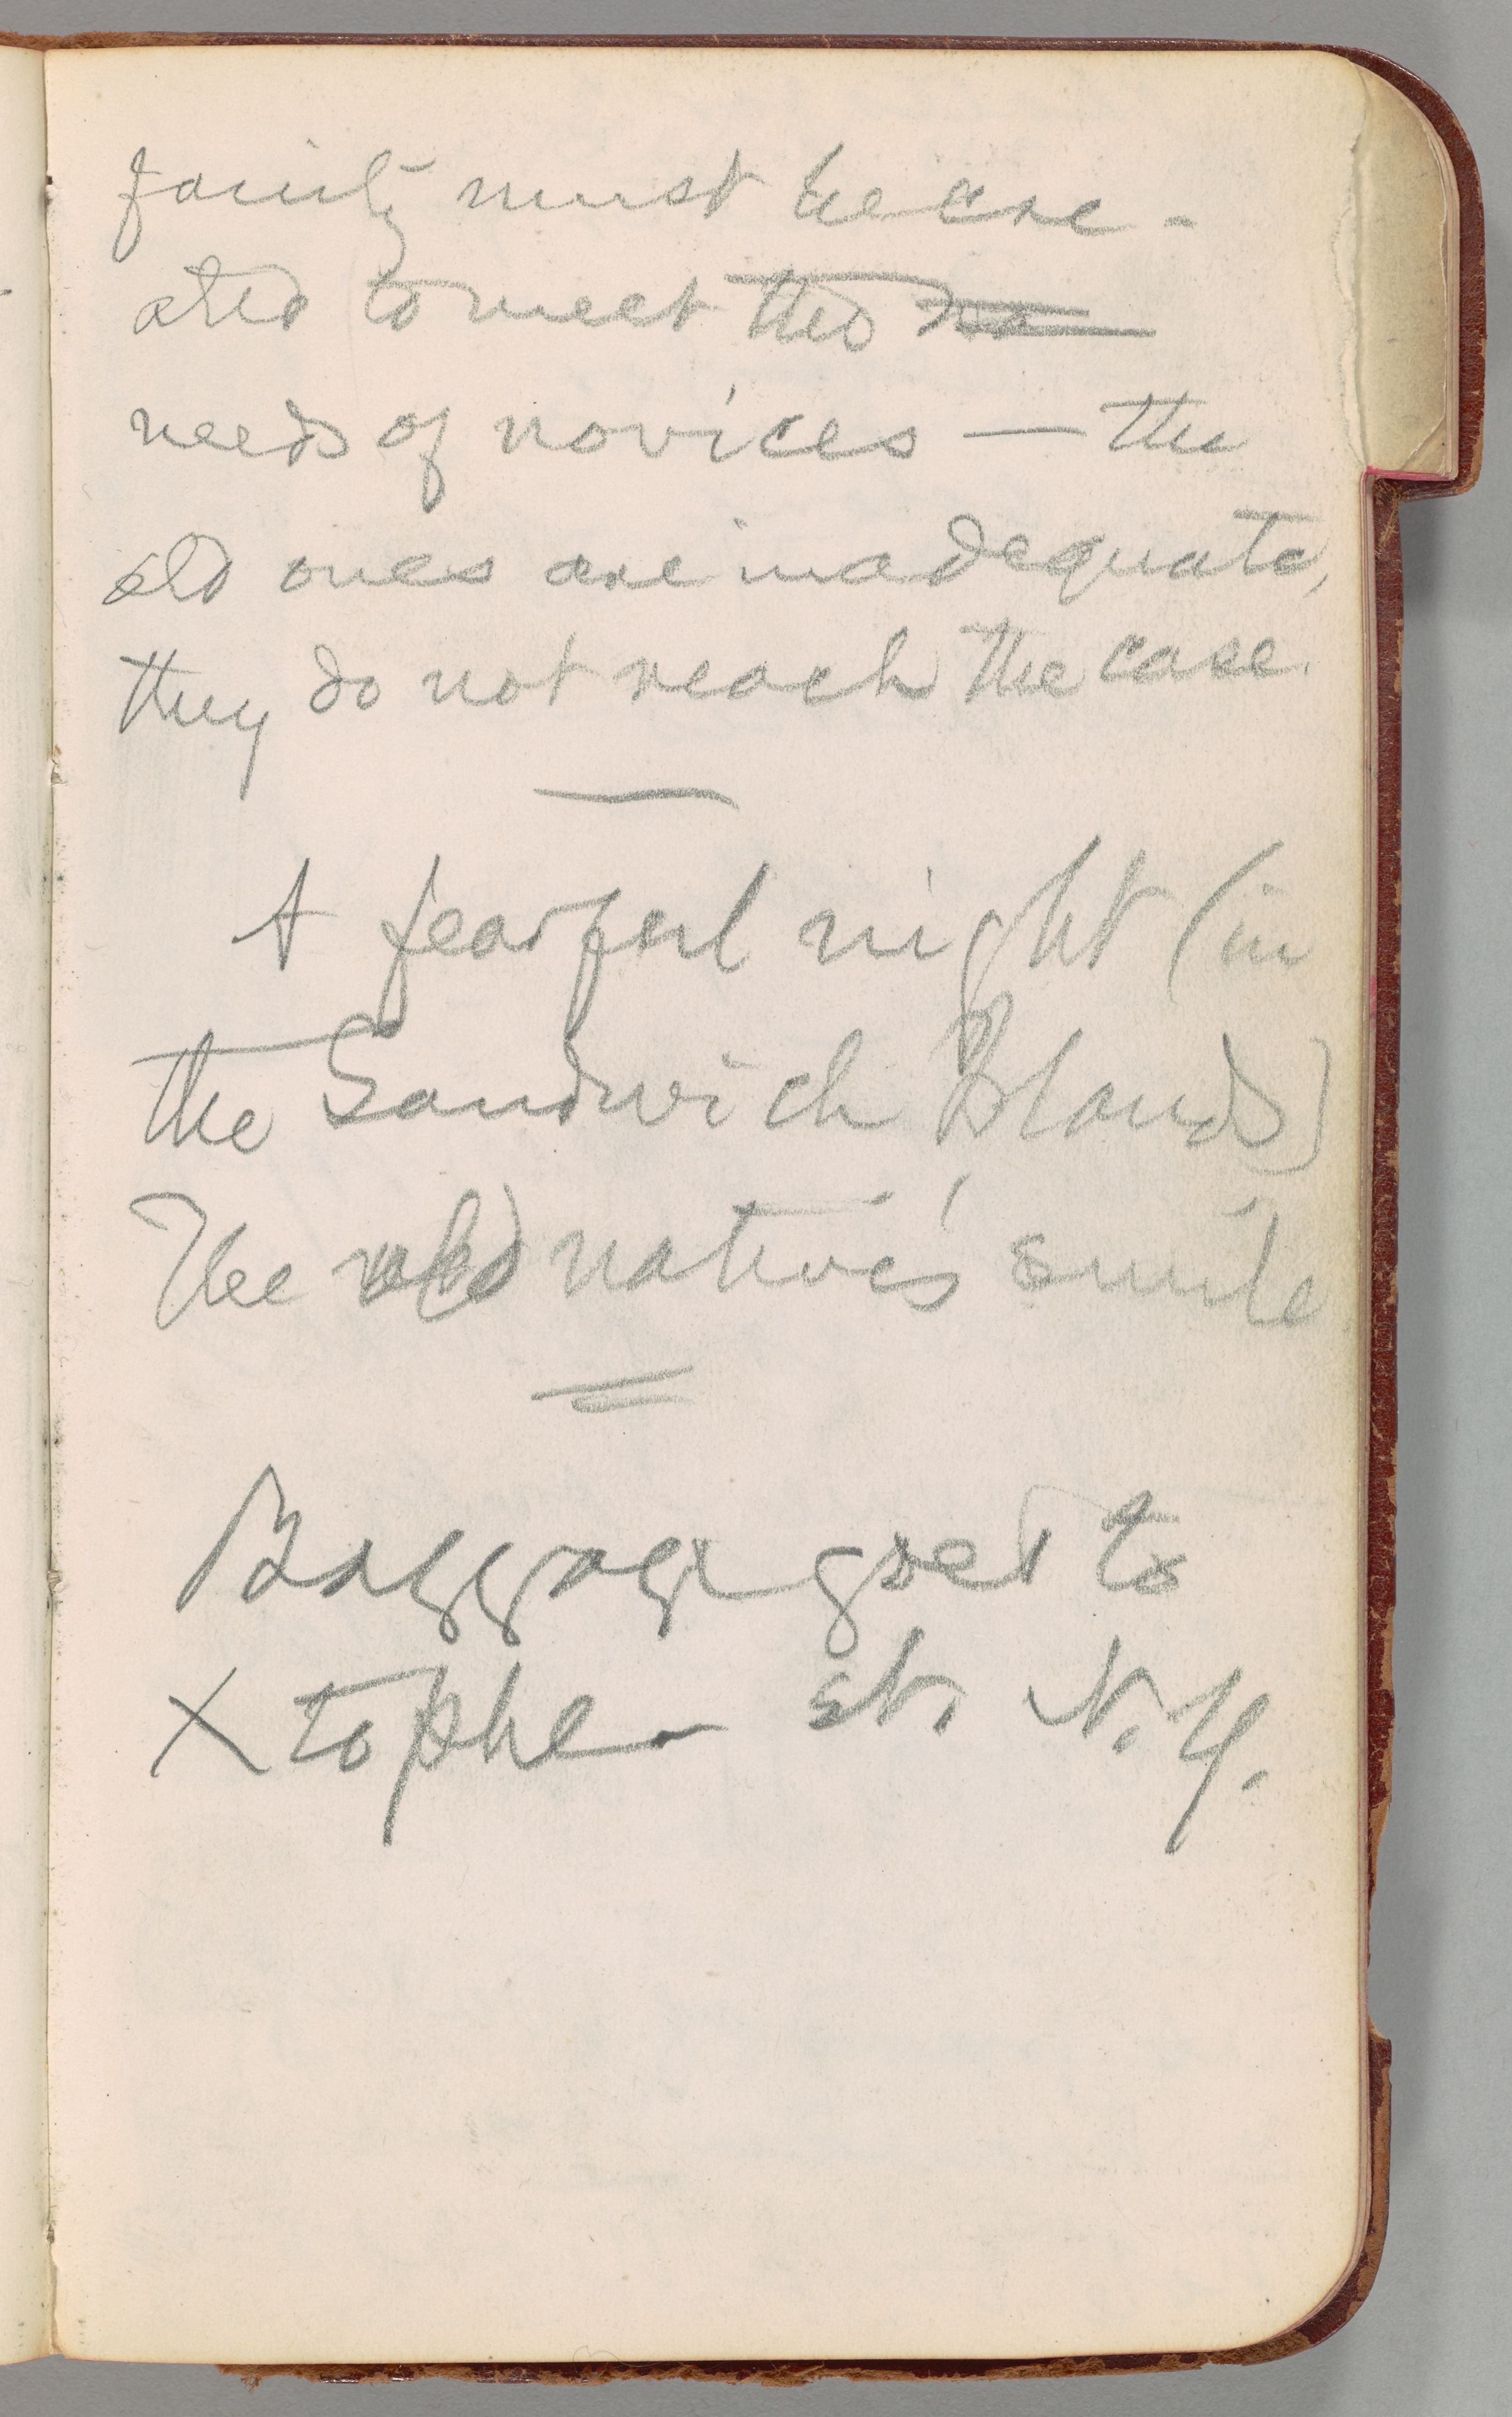 fanity must be cre-
ated to meet the
needs of novices — the
old ones are inadequate,
they do not reach the case.
A fearful night (in
the Sandwich Islands)
The old native's smile
Baggage goes to
Xtopher st. N.Y.